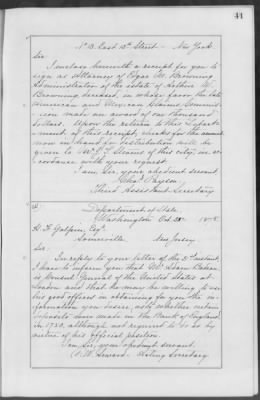 41
No 13. East 12th Street - New York.
Sir
I enclose herewith a receipt for you to
sign as Attorney of Edgar M. Browning
Administrator of the estate of
Browning, deceased, in whose favor the late
American and Mexican Claims Commis-
sion made an award of one thousand
dollars. Upon the return to this Depart-
ment of this receipt, checks for the amount
now in hand for distribution will be
given to of this city, in ac-
cordance with your request.
I am, Sir, your obedient servant
Chas. Payson
Third Assistant Secretary
Department of State
Washington Oct. 28 187
H. F. Esqr.
Somerville, New Jersey
Sir:
In reply to your letter of the instant,
I have to inform you that Mr. Adam Badeau
is Consul General of the United States at
London and that he may be willing to use
his good offices in obtaining for you the in-
formation you desire, as to whether certain
deposits were made in the Bank of England
in 1720, although not required to do so by
virtue of his official position.
I am, Sir, your obedient servant,
F. W. Seward. Acting Secretary